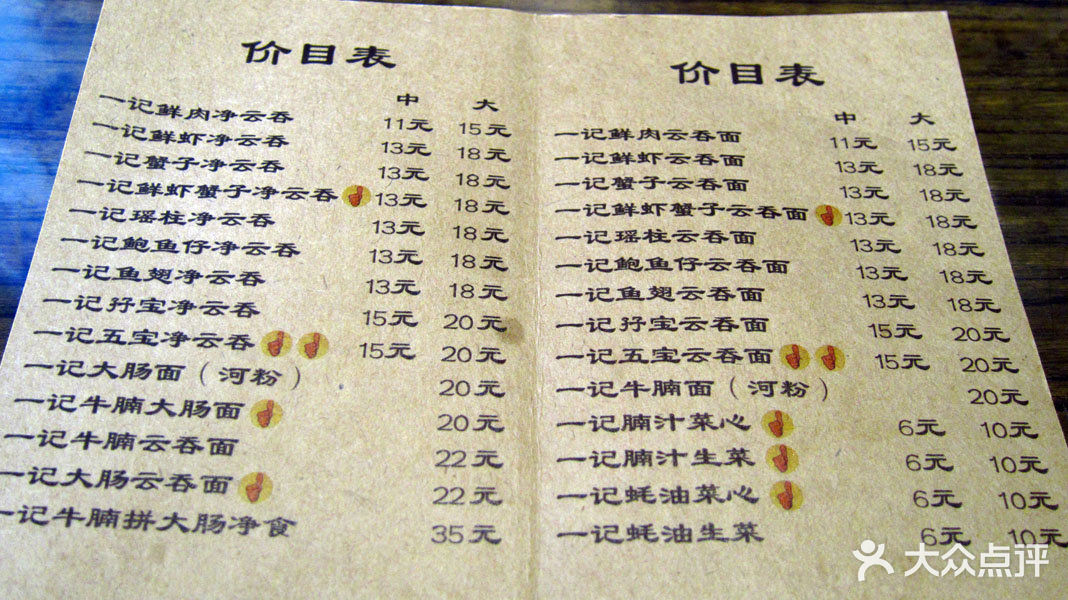 价目表
中 大
一记鲜肉净云吞 11元 15元
一记鲜虾净云吞 13元 18元
一记蟹子净云吞 13元 18元
一记鲜虾蟹子净云吞 13元 18元
一记瑶柱净云吞 13元 18元
一记鲍鱼仔净云吞 13元 18元
一记鱼翅净云吞 13元 18元
一记孖宝净云吞 15元 20元
一记五宝净云吞 15元 20元
一记大肠面（河粉） 20元
一记牛腩大肠面 20元
一记牛腩云吞面 22元
一记大肠云吞面 22元
一记牛腩拼大肠净食 35元
价目表
中 大
一记鲜肉云吞面 11元 15元
一记鲜虾云吞面 13元 18元
一记蟹子云吞面 13元 18元
一记鲜虾蟹子云吞面 13元 18元
一记瑶柱云吞面 13元 18元
一记鲍鱼仔云吞面 13元 18元
一记鱼翅云吞面 13元 18元
一记孖宝云吞面 15元 20元
一记五宝云吞面 15元 20元
一记牛腩面（河粉） 20元
一记腩汁菜心 6元 10元
一记腩汁生菜 6元 10元
一记蚝油菜心 6元 10元
一记蚝油生菜 6元 10元
大众点评